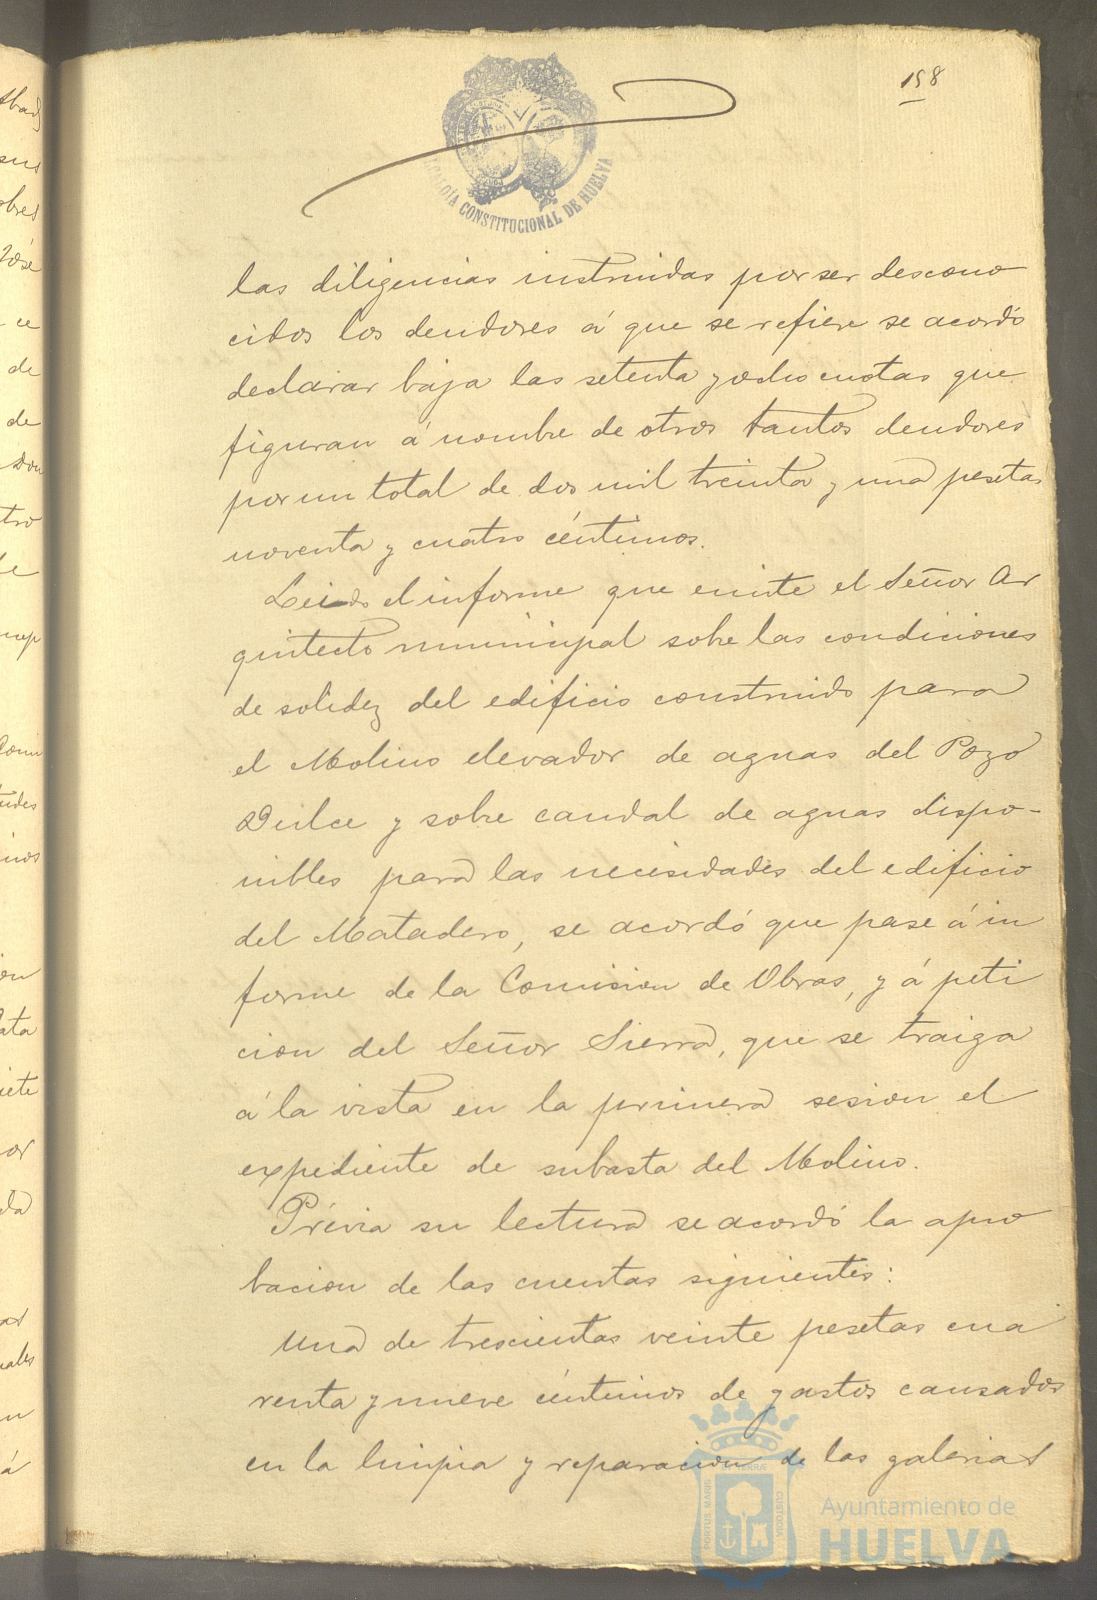 198
ALCALDÍA CONSTITUCIONAL DE HUELVA
las diligencias instruidas por ser descono
cidos los deudores á que se refiere se acordó
declarar baja las setenta y ocho cuotas que
figuran á nombre de otros tantos deudores
por un total de dos mil treinta y una pesetas
noventa y cuatro céntimos.
Leido el informe que emite el Señor Ar
quitecto municipal sobre las condiciones
de solidez del edificio construido para
el Molino elevador de aguas del Pozo
Dulce y sobre caudal de aguas dispo-
nibles para las necesidades del edificio
del Matadero, se acordó que pase á in
forme de la Comision de Obras, y á peti
cion del Señor Sierra, que se traiga
á la vista en la primera sesion el
expediente de subasta del Molino.
Prévia su lectura se acordó la apro
bacion de las cuentas siguientes:
Una de trescientas veinte pesetas cua
renta y nueve céntimos de gastos causados
en la limpia y reparacion de las galerias
PORTUS MARIS
ET TERRÆ
CUSTODIA
Ayuntamiento de
HUELVA